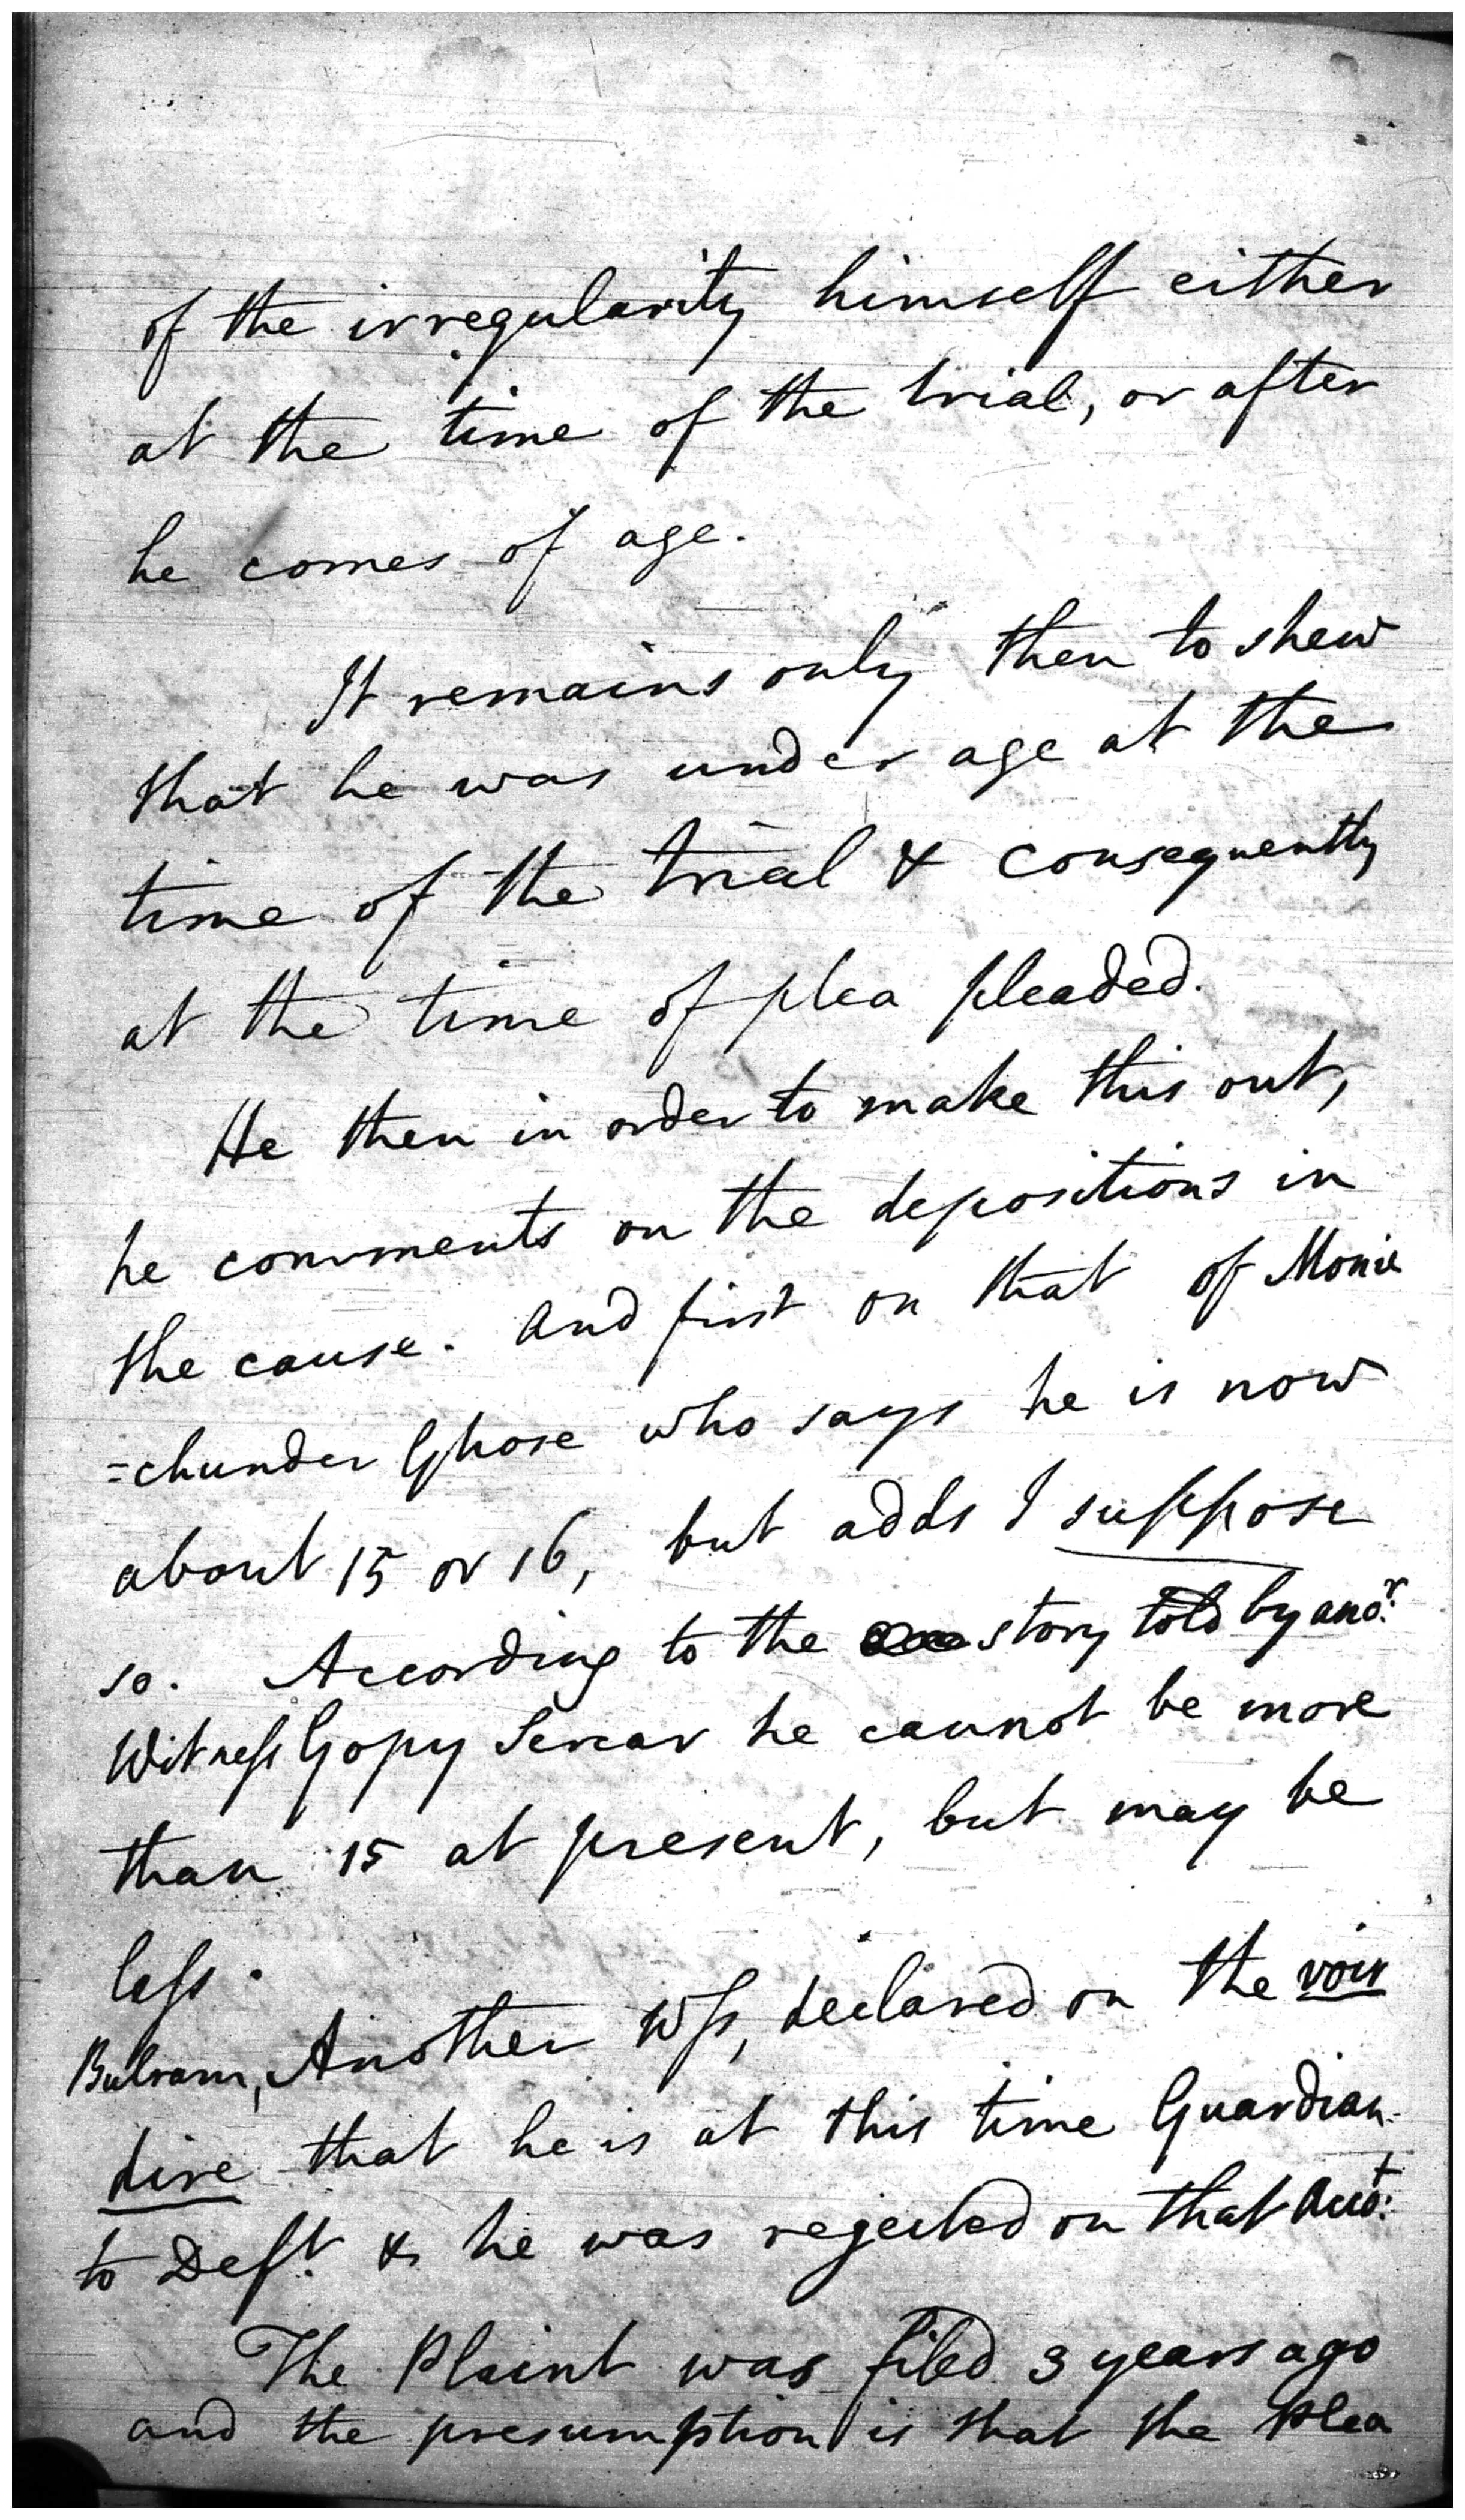 of the irregularity himself either
at the time of the trial, or after
he comes of age.
It remains only then to shew
that he was under age at the
time of the trial & consequently
at the time of plea pleaded.
He then in order to make this out,
he comments on the depositions in
the cause. And first on that of Monie
=chunder Ghose who says he is now
about 15 or 16, but adds I suppose
so. According to the story told by ano.r
Witness Gopy Sercar he cannot be more
than 15 at present, but may be
less.
Bulram, Another Wss, declared on the voir
dire that he is at this time Guardian
to Deft. & he was rejected on that Acct:
The Plaint was filed 3 years ago
and the presumption is that the Plea